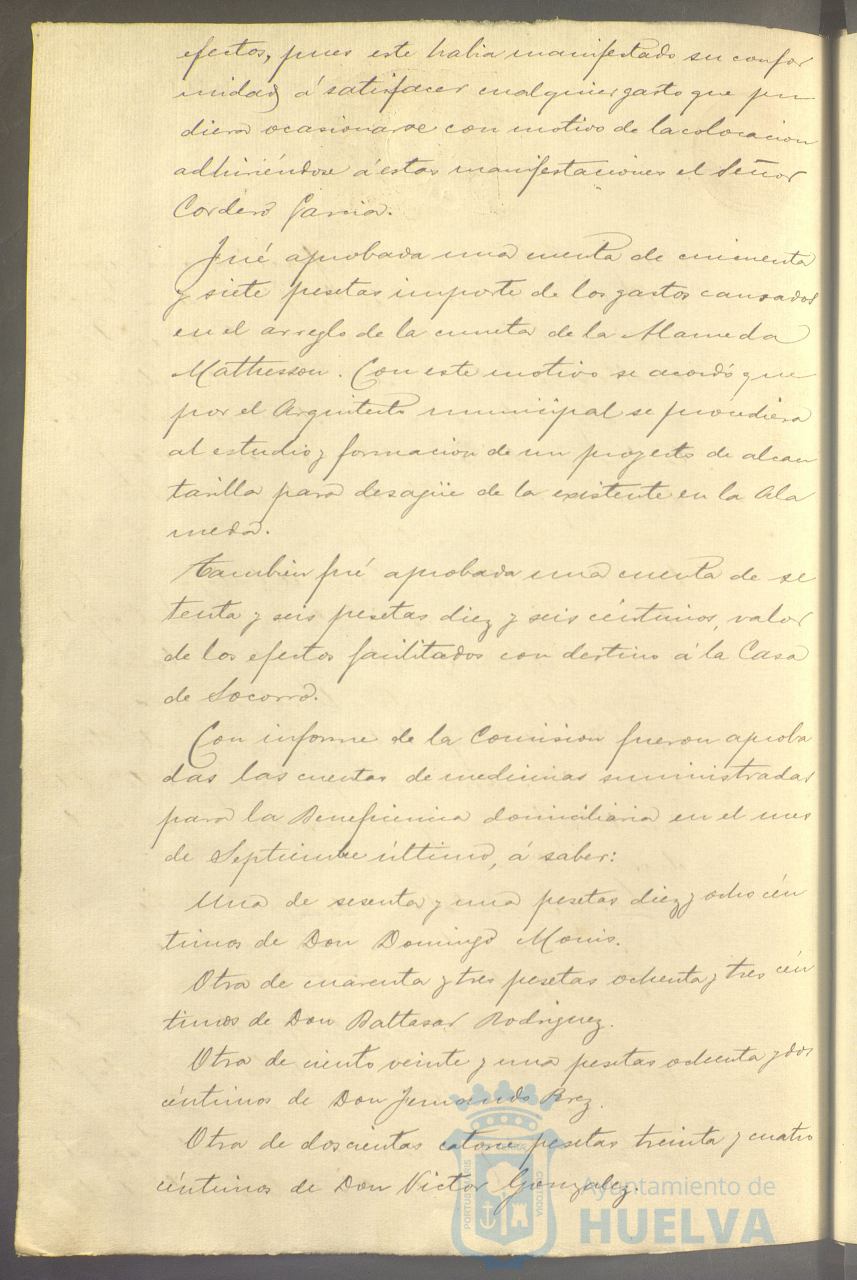 efectos, pues este habia manifestado su confor
midad á satisfacer cualquier gasto que pu
diera ocasionarse con motivo de la colocacion
adhiriéndose á estas manifestaciones el Señor
Cordero Garcia.
Fué aprobada una cuenta de cincuenta
y siete pesetas importe de los gastos causados
en el arreglo de la cuneta de la Alameda
Mathesson. Con este motivo se acordó que
por el Arquitecto municipal se procediera
al estudio y formacion de un proyecto de alcan
tarilla para desagüe de la existente en la Ala
meda.
Tambien fué aprobada una cuenta de se
tenta y seis pesetas diez y seis céntimos, valor
de los efectos facilitados con destino á la Casa
de Socorro.
Con informe de la Comision fueron aproba
das las cuentas de medicinas suministradas
para la Beneficencia domiciliaria en el mes
de Septiembre último, á saber:
Una de sesenta y una pesetas diez y ocho cén
timos de Don Domingo Monis.
Otra de cuarenta y tres pesetas ochenta y tres cén
timos de Don Baltasar Rodriguez.
Otra de ciento veinte y una pesetas ochenta y dos
céntimos de Don Fernando
Otra de doscientas catorce pesetas treinta y cuatro
céntimos de Don Victor Gonzalez.
Ayuntamiento de
HUELVA